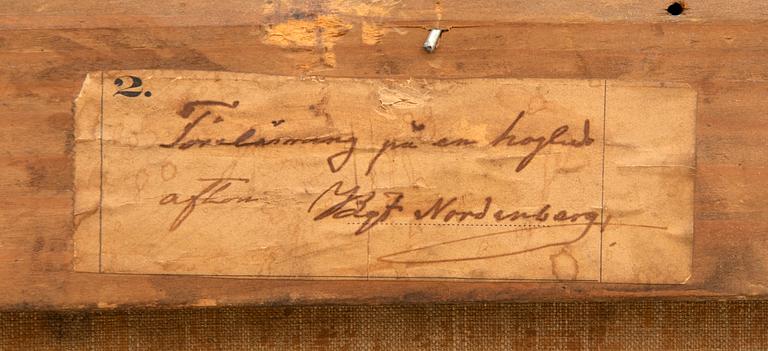 2.
Föreläsning på en höglids
afton Bgt Nordenberg